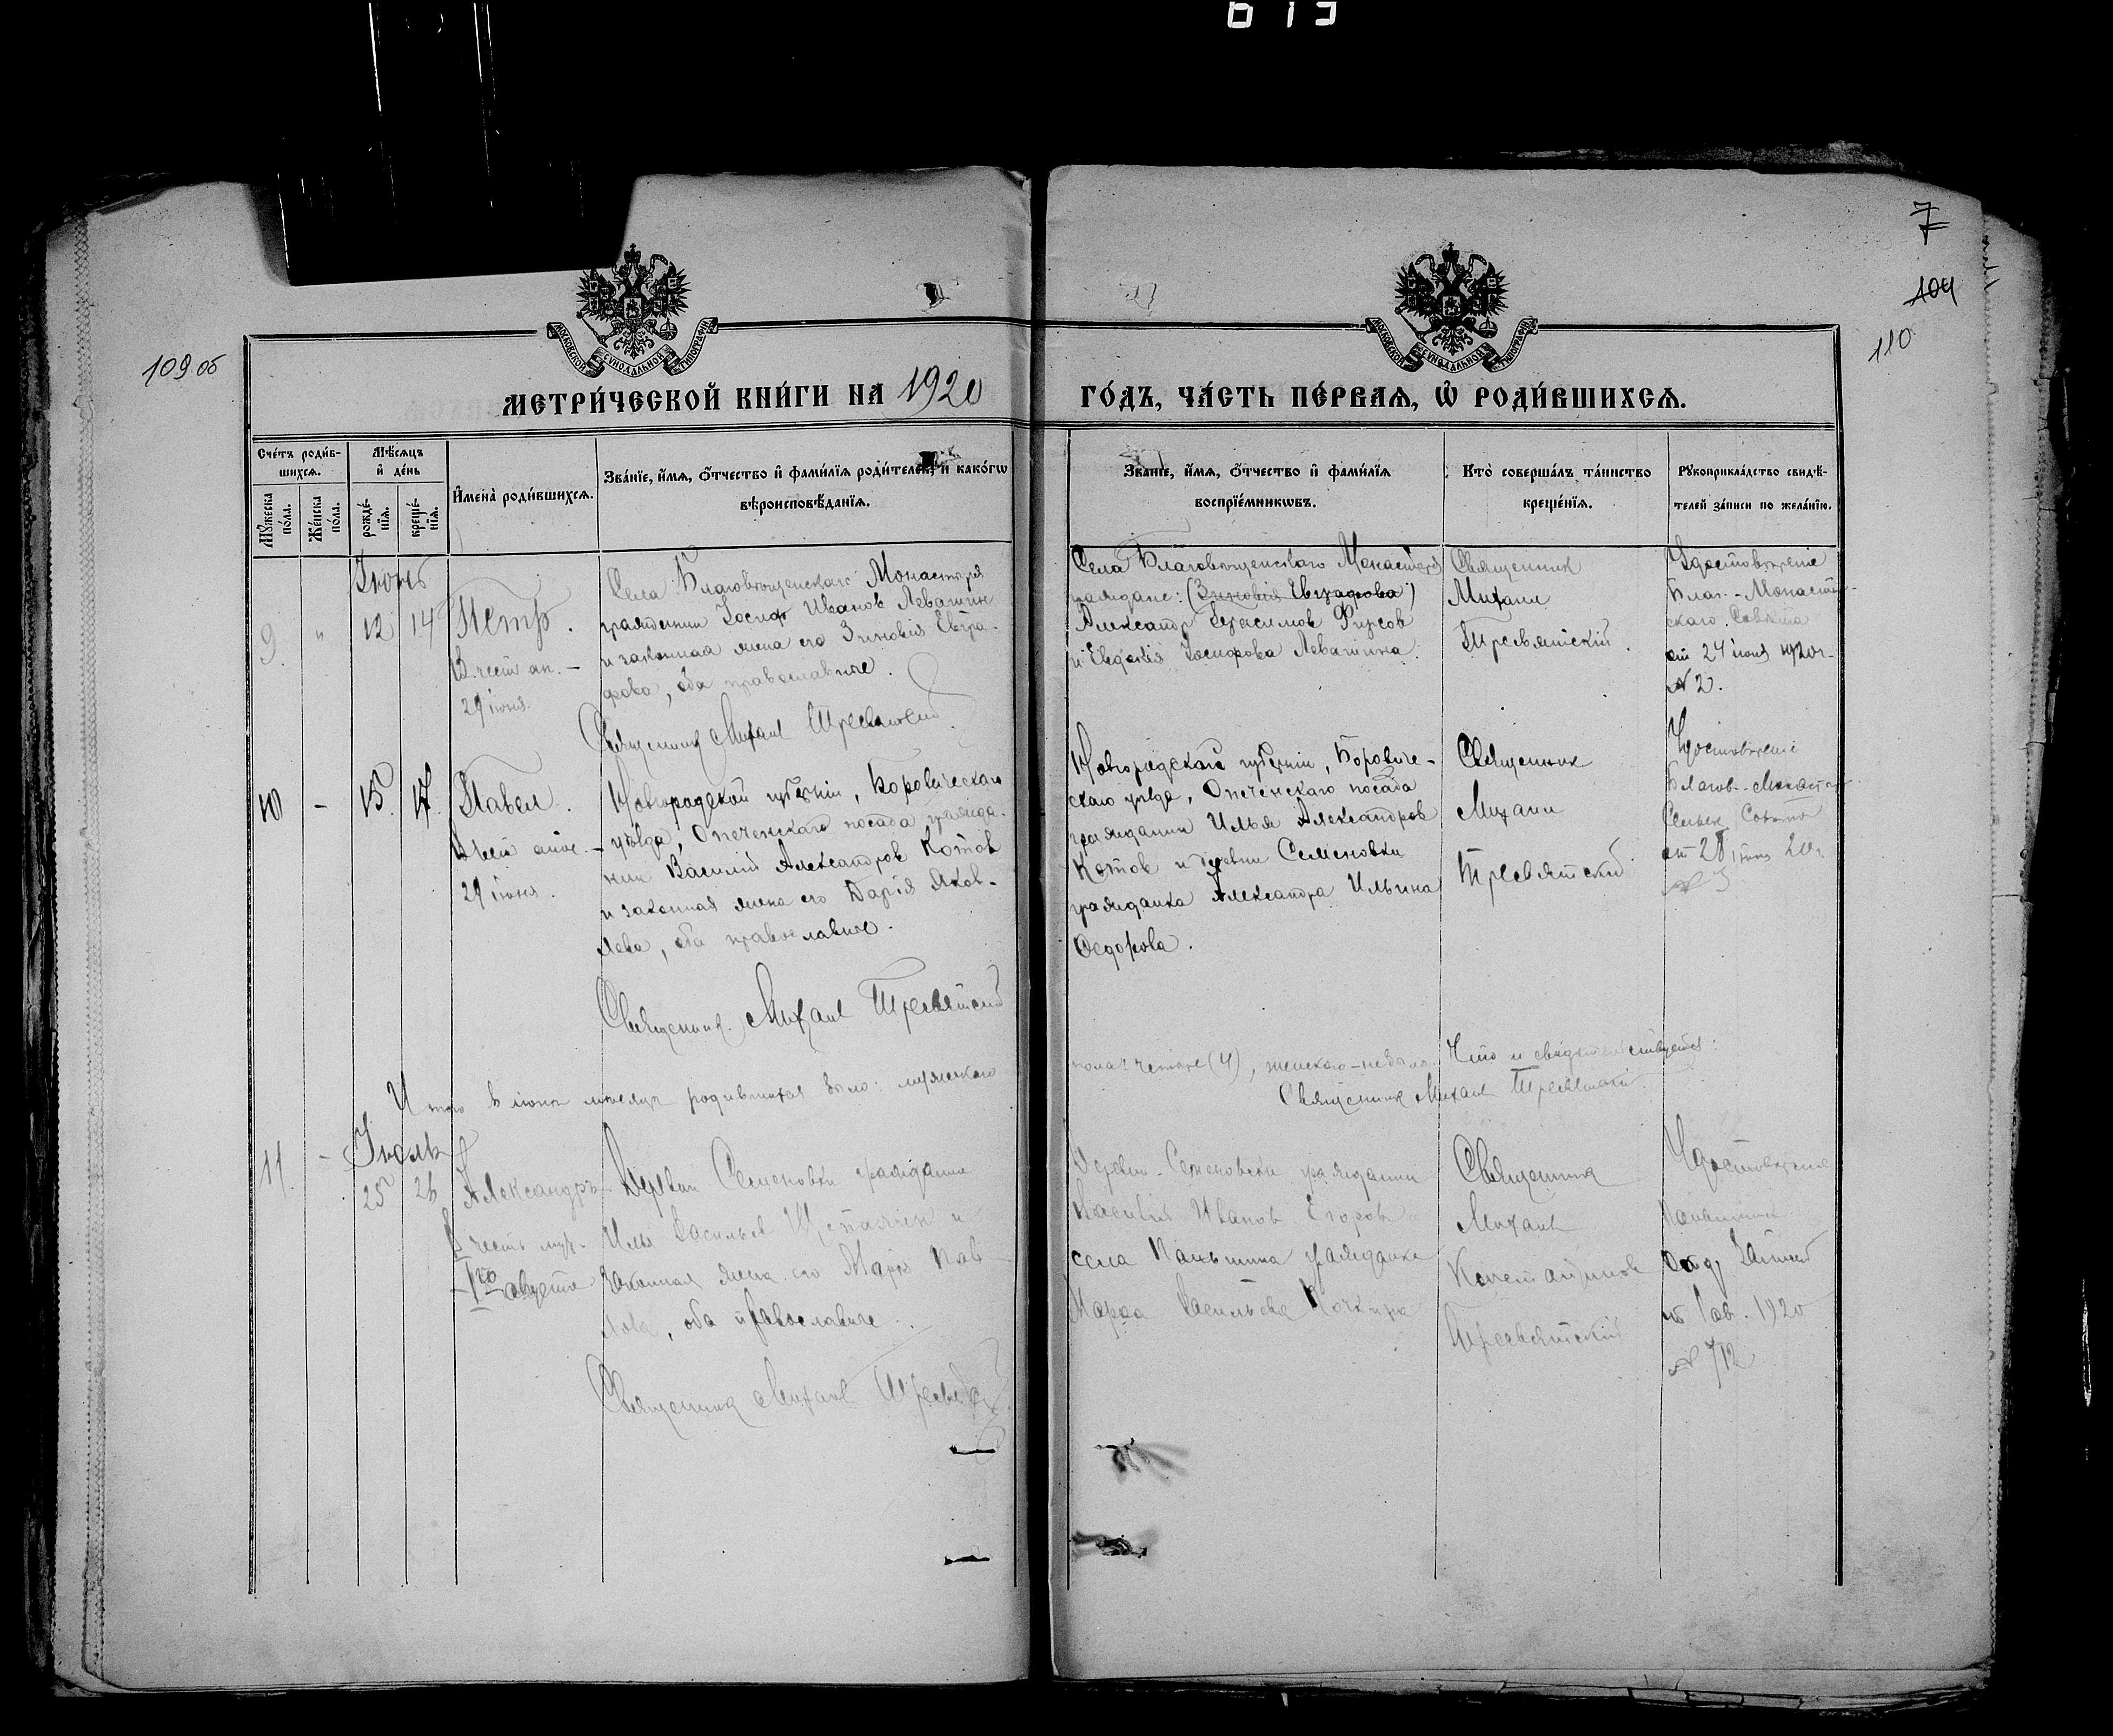 613
7
104
110
109 об
МОСКОВСКОЙ СѴНОДАЛЬНОЙ ТИПОГРАФІИ
МОСКОВСКОЙ СѴНОДАЛЬНОЙ ТИПОГРАФІИ
МЕТРИ́ЧЕСКОЙ КНИ́ГИ НА 1920
ГО́ДЪ, ЧА́СТЬ ПЕ́РВАѦ, Ѡ҆ РОДИ́ВШИХСѦ.
Сче́тъ роди́в-
шихсѧ.
Мꙋ́жеска
по́ла.
Же́нска
по́ла.
Мѣ́сѧцъ
и҆ де́нь
рожде́-
нїѧ.
креще́-
нїѧ.
И҆мена̀ роди́вшихсѧ.
Зва́нїе, и҆́мѧ, ѻ҆́тчество и҆ фами́лїѧ роди́телей, и како́гѡ
вѣроисповѣ́данїѧ.
Зва́нїе, и҆́мѧ, ѻ҆́тчество и҆ фами́лїѧ
воспрїе́мникѡвъ.
Кто̀ соверша́лъ та́инство
креще́нїѧ.
Рꙋкоприкла́дство свидѣ́-
телей за́писи по жела́нїю.
Іюнь
9.
"
12
14
Петръ.
В честь ап. -
29 іюня.
Села Благовѣщенскаго Монастыря
гражданин Іосиф Иванов Левашин
и законная жена его Зиновія Евгра-
фова, оба православные.
Священник Михаил Тресвятский.
Села Благовѣщенскаго Монастыря
граждане: (Зиновія Евграфова)
Александр Герасимов Фирсов
и Евдокія Іосифова Левашина.
Священник
Михаил
Тресвятскій.
Удостовѣреніе
Благ.-Монасты-
скаго Совѣта
от 27 іюня 1920 г.
№ 2.
10
-
15
17.
Павел.
В честь апос. -
29 іюня.
Новгородской губерніи, Боровическаго
уѣзда, Опеченскаго посада гражда-
нин Василій Александров Котов
и законная жена его Дарія Яков-
лева, оба православные.
Священник Михаил Тресвятский
Новгородской губерніи, Борович-
скаго уѣзда, Опеченскаго посада
гражданин Илья Александров
Котов и деревни Семеновки
гражданка Александра Ильина
Федорова.
Священник
Михаил
Тресвятский
Удостовѣреніе
Благов.-Монаст
Сельск. Совѣта
от 28 іюня 20 г.
№ 3
Итого в іюнѣ мѣсяцѣ родившихся было: мужского
пола четыре (4), женского-не было. Что и свидѣтельствуется:
Священник Михаил Тресвятский.
Іюль
11.
-
25
26
Александръ
В честь муч.
1го августа
Деревни Семеновки гражданин
Илья Васильев и
законная жена его Марія Пав-
лова, оба православные.
Священник Михаил
Деревни Семеновки гражданин
Василій Иванов Егоров и
села Паньшина гражданка
Марфа Васильева
Священник
Михаил
Константинов
Тресвятский
Удостовѣреніе
от 1 ав. 1920
№ 712